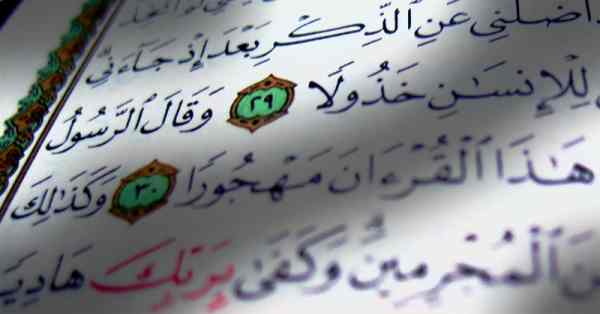 أَضَلَّنِي عَنِ ٱلذِّكْرِ بَعْدَ إِذْ جَآءَنِي
لِلْإِنسَٰنِ خَذُولًا ٢٩ وَقَالَ ٱلرَّسُولُ
هَٰذَا ٱلْقُرْءَانَ مَهْجُورًا ٣٠ وَكَذَٰلِكَ
ٱلْمُجْرِمِينَ وَكَفَىٰ بِرَبِّكَ هَادِيًا